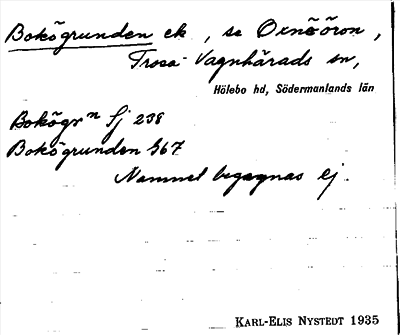 Bokögrunden ek, se Oxnööron,
Trosa-Vagnhärads sn,
Hölebo hd, Södermanlands län
Bokögrn Sj 238
Bokögrunden 567
Namnet begagnas ej.
KARL-ELIS NYSTEDT 1935